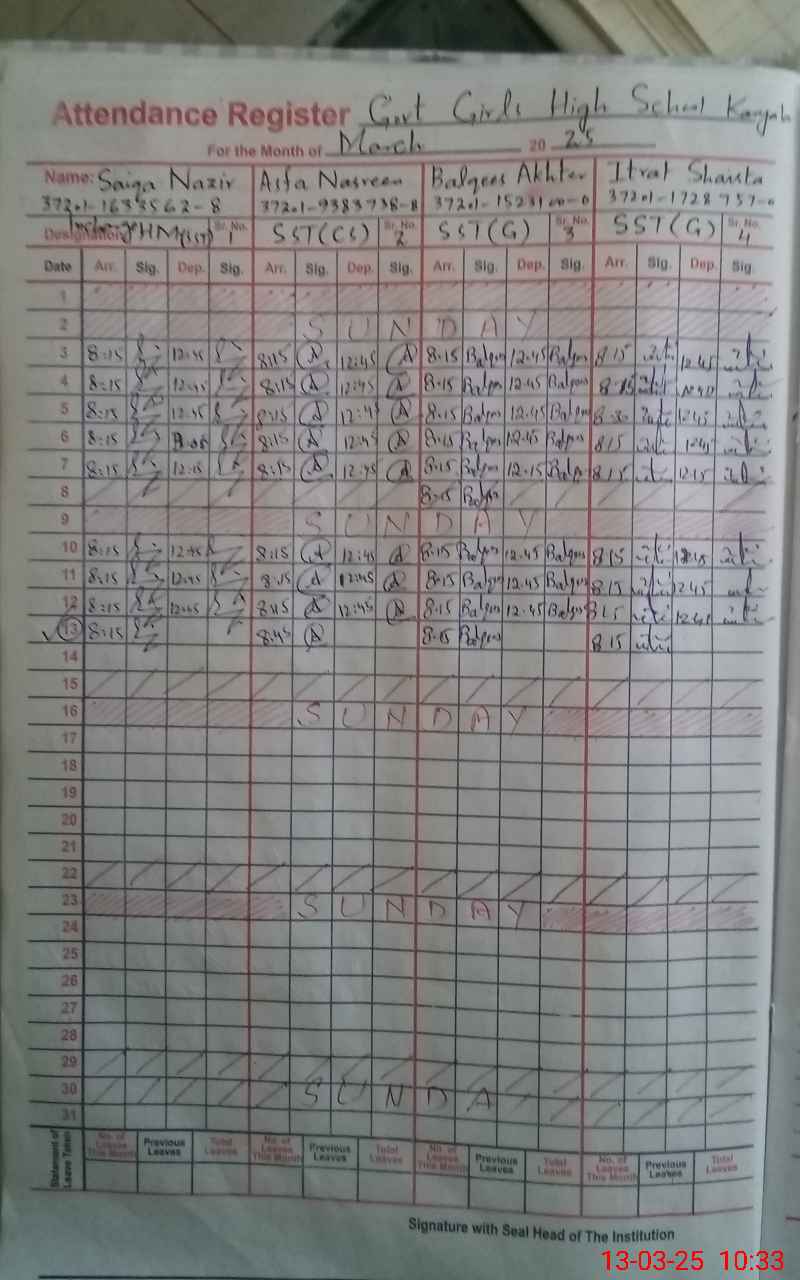 Attendance Register Govt Girls High School
For the Month of March 20 25
Name: Saiqa Nazir Asfa Nasreen Balqees Akhter Itrat Shaista
37201-1633562-8 37201-9383738-8 37201-1523100-0 37201-1728757-0
Designation Incharge HM Sr. No. 1 SST(CS) Sr. No. 2 SST(G) Sr. No. 3 SST(G) Sr. No. 4
Date Arr. Sig. Dep. Sig. Arr. Sig. Dep. Sig. Arr. Sig. Dep. Sig. Arr. Sig. Dep. Sig.
1
2 SUNDAY
3 8:15 12:45 8:15 12:45 8:15 Balqees 12:45 Balqees 8:15 12:45
4 8:15 12:45 8:15 12:45 8:15 Balqees 12:45 Balqees
5 8:15 12:45 8:15 12:45 8:15 Balqees 12:45 Balqees 8:30 12:45
6 8:15 8:15 12:45 8:15 Balqees 12:45 Balqees 8:15 12:45
7 8:15 12:15 8:15 8:15 Balqees 12:15 Balqees 8:15 12:15
8 8:15 Balqees
9 SUNDAY
10 8:15 12:45 8:15 12:45 8:15 Balqees 12:45 Balqees 8:15
11 8:15 12:45 8:15 12:45 8:15 Balqees 12:45 Balqees 8:15 12:45
12 8:15 12:45 8:15 12:45 8:15 Balqees 12:45 Balqees 12:45
13 8:15 8:15 Balqees 8:15
14
15
16 SUNDAY
17
18
19
20
21
22
23 SUNDAY
24
25
26
27
28
29
30 SUNDA
31
Statement of Leave Taken No. of Leaves This Month Previous Leaves Total Leaves No. of Leaves This Month Previous Leaves Total Leaves No. of Leaves This Month Previous Leaves Total Leaves No. of Leaves This Month Previous Leaves Total Leaves
Signature with Seal Head of The Institution
13-03-25 10:33